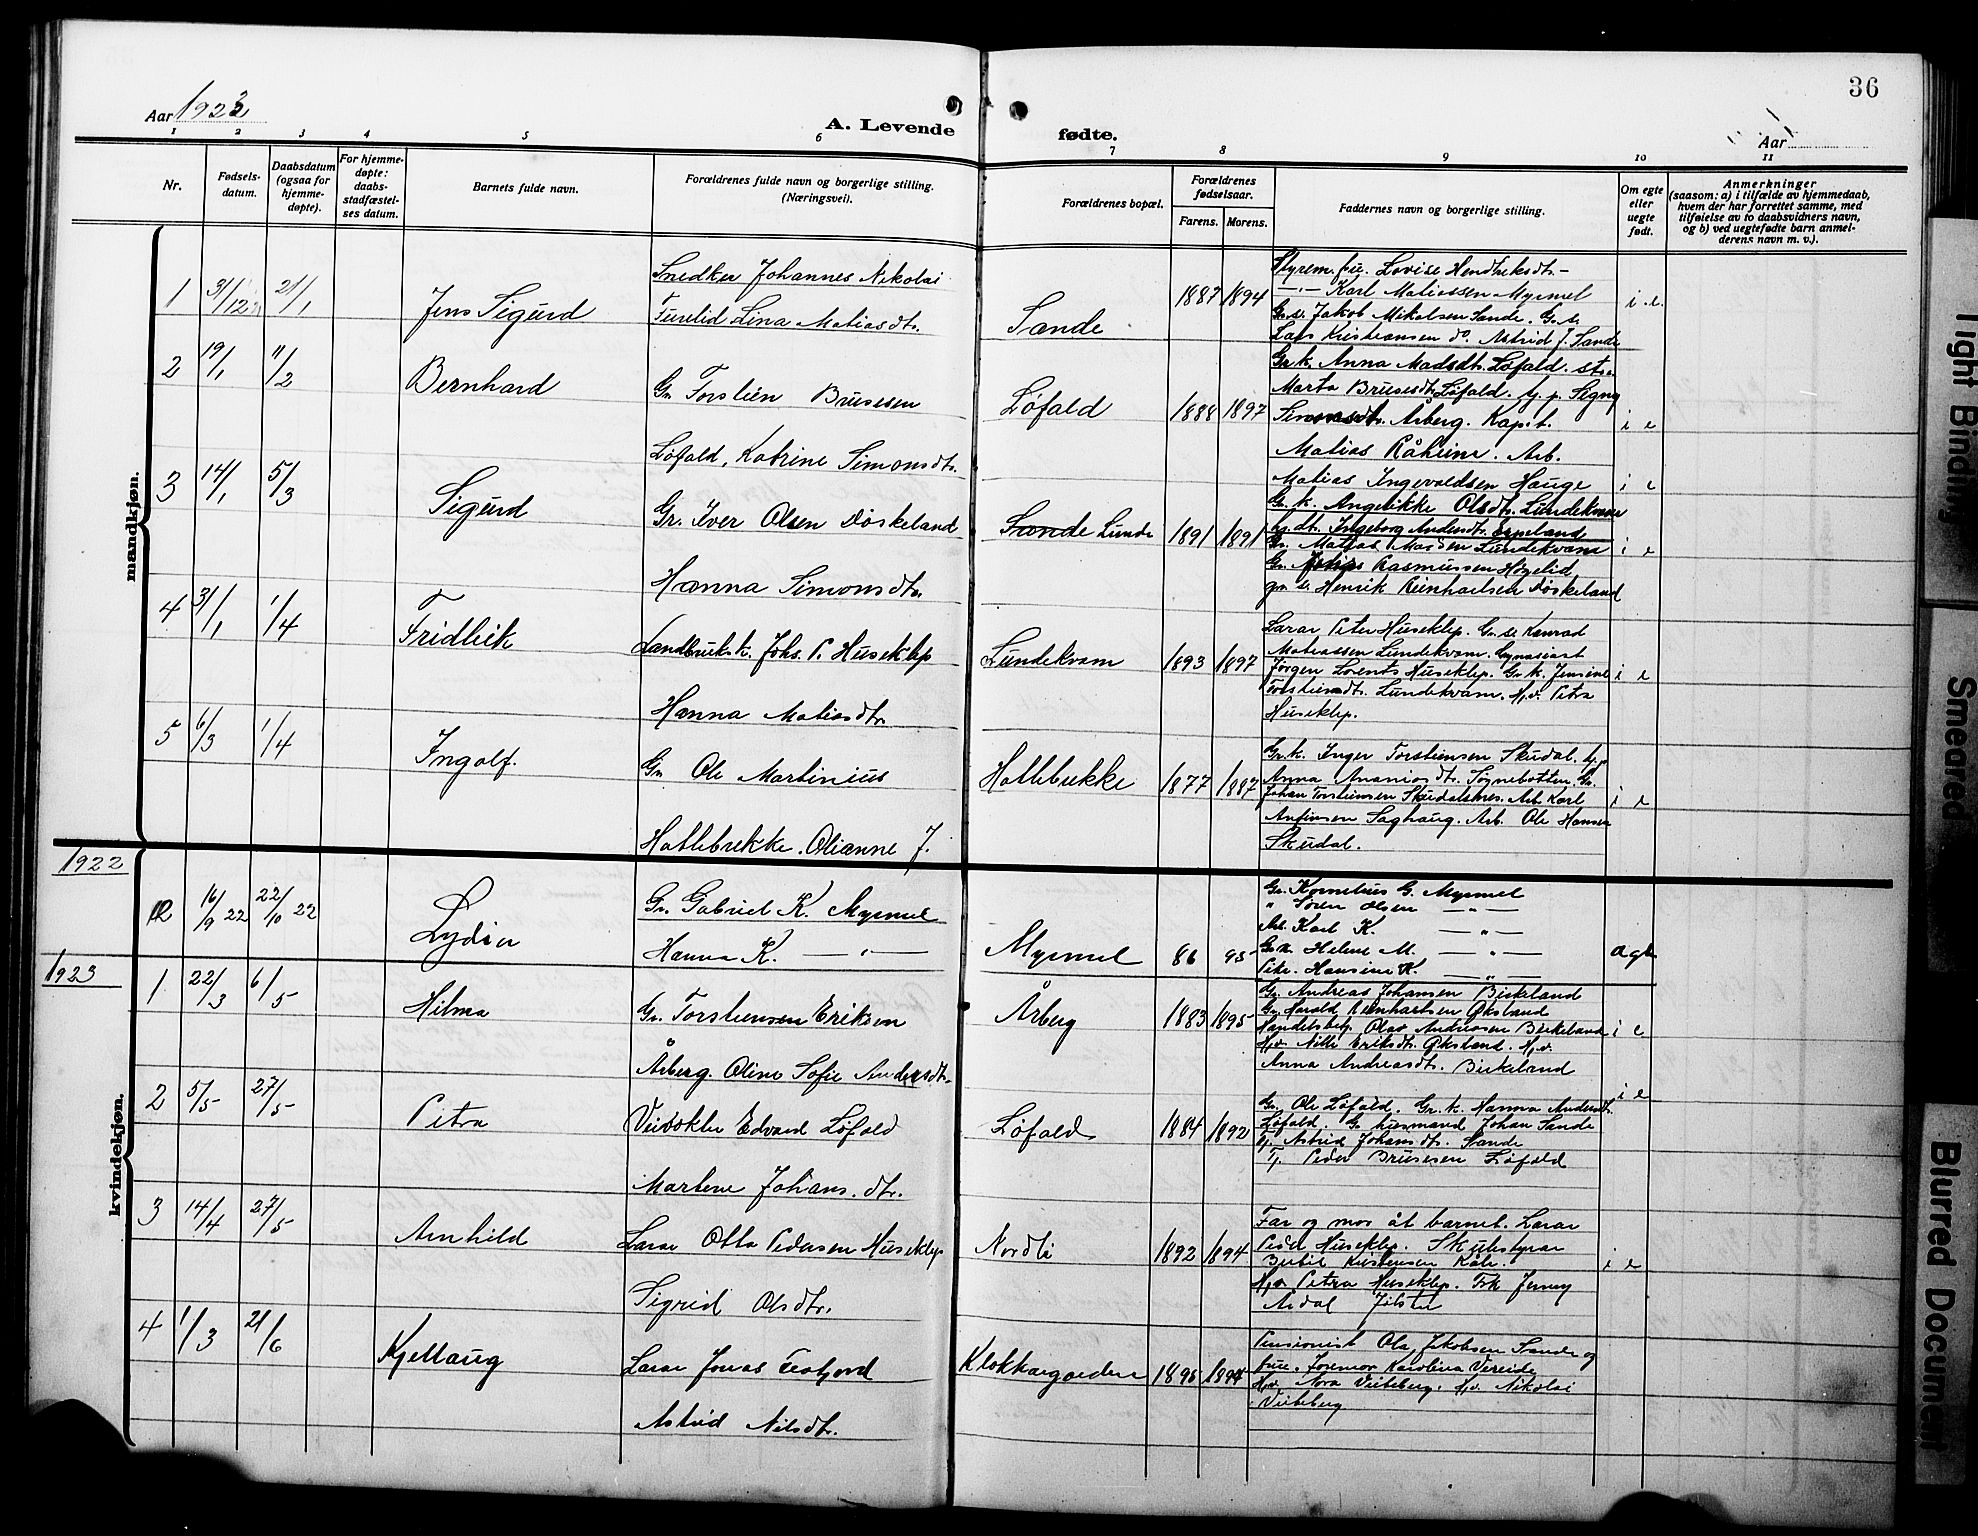 36
Aar 1923
A. Levende fødte.
Aar
1 2 3 4 5 6 7 8 9 10 11
Nr.
Fødsels-
datum.
Daabsdatum
(ogsaa for
hjemme-
døpte).
For hjemme-
døpte:
daabs-
stadfæstel-
ses datum.
Barnets fulde navn.
Forældrenes fulde navn og borgerlige stilling.
(Næringsvei).
Forældrenes bopæl.
Forældrenes
fødselsaar.
Farens. Morens.
Faddernes navn og borgerlige stilling.
Om egte
eller
uegte
født.
Anmerkninger
(saasom: a) i tilfælde av hjemmedaab,
hvem der har forrettet samme, med
tilføielse av to daabsvidners navn,
og b) ved uegtefødte barn anmel-
derens navn m. v.).
mandkjøn.
1 31/12 21/1 Jens Sigurd
Snedker Johannes Nikolai
Furelid Lina Matiasdtr.
Sande 1887 1894
Styrem. frue. Lovise Hendriksdtr.
Karl Matiassen Myrmel
G. s. Jakob Mikalsen Sande. G. s.
Lars Kristiansen do. Astrid J. Sande
i e.
2 19/1 11/2 Bernhard
Gr. Torstein Brusesen
Løfald, Katrine Simonsdtr.
Løfald 1888 1897
Gr.k. Anna Madsdtr. Løfald.
Marta Brusesdtr. Løfald. Signy
Simonsdtr. Årberg. Kapt.
Matias Råheim. Arb.
Matias Ingevaldsen Hauge
i e
3 14/1 5/3 Sigurd
Gr. Iver Olsen Døskeland
Hanna Simonsdtr.
Sande Lunde 1891 1891
Gr. k. Angelikke Olsdtr. Lundekvam
Ingeborg Andersdtr. Espeland
Gr. Matias Madsen Lundekvam
Gr. Rasmussen Høgelid
gr. s. Henrik Reinhartsen Døskeland
i e
4 31/1 1/4 Fridleik
Landbruksk. Johs. P. Huseklep
Hanna Matiasdtr.
Lundekvam 1893 1897
Lærar Peter Huseklep. Gr. s. Konrad
Matiassen Lundekvam. Gymnasiast
Jørgen Lorents Huseklep. Gr. k. Jensine
Torsteinsdtr. Lundekvam. H.v. Petra
Huseklep.
i e
5 6/3 1/4 Ingolf.
Gr. Ole Martinius
Hatlebrekke. Olianne J.
Hatlebrekke 1877 1887
Gr.k. Inger Torsteinsen Skudal.
Anna Ananiasdtr. Søgnebotten. Gr.
Johan Torsteinsen Skudalsnes. Arb. Karl
Anfinsen Saghaug. Arb. Ole Hansen
Skudal.
i e
1922
12 16/9 22 22/10 22 Lydia
Gr. Gabriel K. Myrmel
Hanna K. — " —
Myrmel 86 95
Gr. Kornelius G. Myrmel
" Søren Olsen — " —
Arb. Karl K. — " —
Gr.k. Helene M. — " —
Pike. Hansine K. — " —
ægte
1923
kvindekjøn.
1 22/3 6/5 Hilma
Gr. Torsteinsen Eriksen
Årberg. Oline Sofie Andersdtr.
Årberg 1883 1895
Gr. Andreas Johansen Birkeland
Gr. Harald Reinhartsen Øksland
Handelsbetj. Olav Andreasen Birkeland
H.v. Nille Eriksdtr. Øksland. H.v.
Anna Andreasdtr. Birkeland
i e
2 5/5 27/5 Petra
Veivokter Edvard Løfald
Martine Johans. dtr.
Løfald 1884 1892
Gr. Ole Løfald. Gr. k. Hanna Andersdtr.
Løfald. G. husmand Johan Sande
Tj. Astrid Johansdtr. Sande
Tj. Peder Brusesen Løfald
i e
3 14/4 27/5 Arnhild
Lærar Otto Pedersen Huseklep
Sigrid Olsdtr.
Nordli 1892 1894
Far og mor åt barnet. Lærar
Peder Huseklep. Skulestyrar
Bertil Kristensen
H.v. Petra Huseklep. Frk Jenny
Årdal Jølster
i e
4 1/3 21/6 Kjellaug
Lærar Jonas Fosfjord
Astrid Nilsdtr.
Klokkargarden 1895 1894
Pensionist Ola Jakobsen Sande og
frue. Karolina Vereide
H.v. Nora Viiteberg. H.v. Nikolai
Viiteberg
Tight Binding
Smeared
Blurred Document